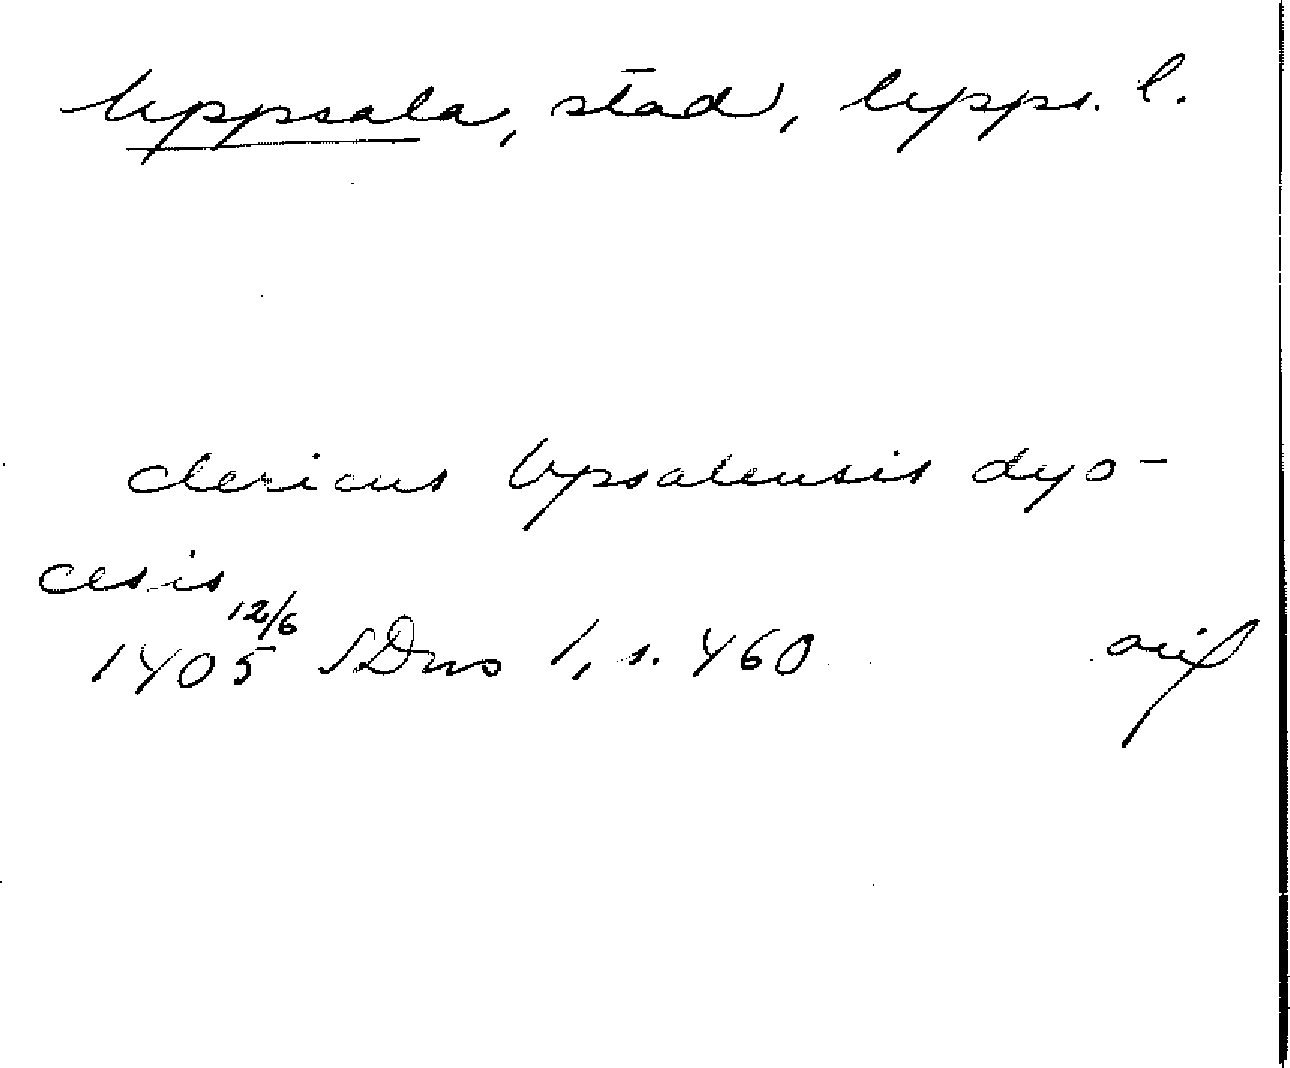 Uppsala, stad, Upps. l.
clericus Vpsalensis dyo-
cesis
1405 12/6 SDns 1, s. 460 avs